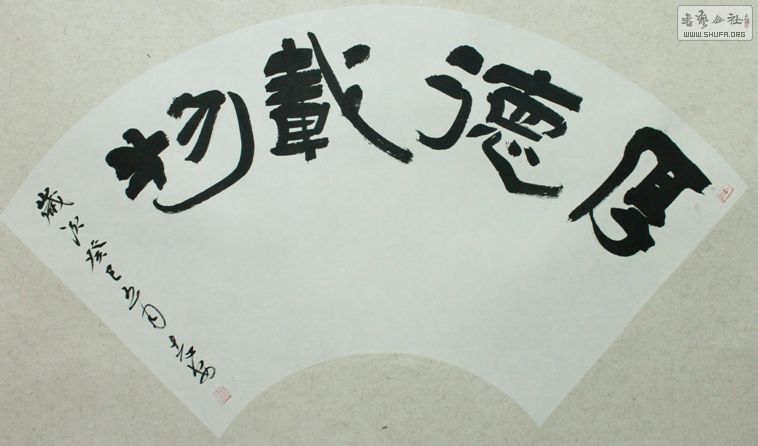 厚德載物
歲次癸巳
书艺公社
WWW.SHUFA.ORG